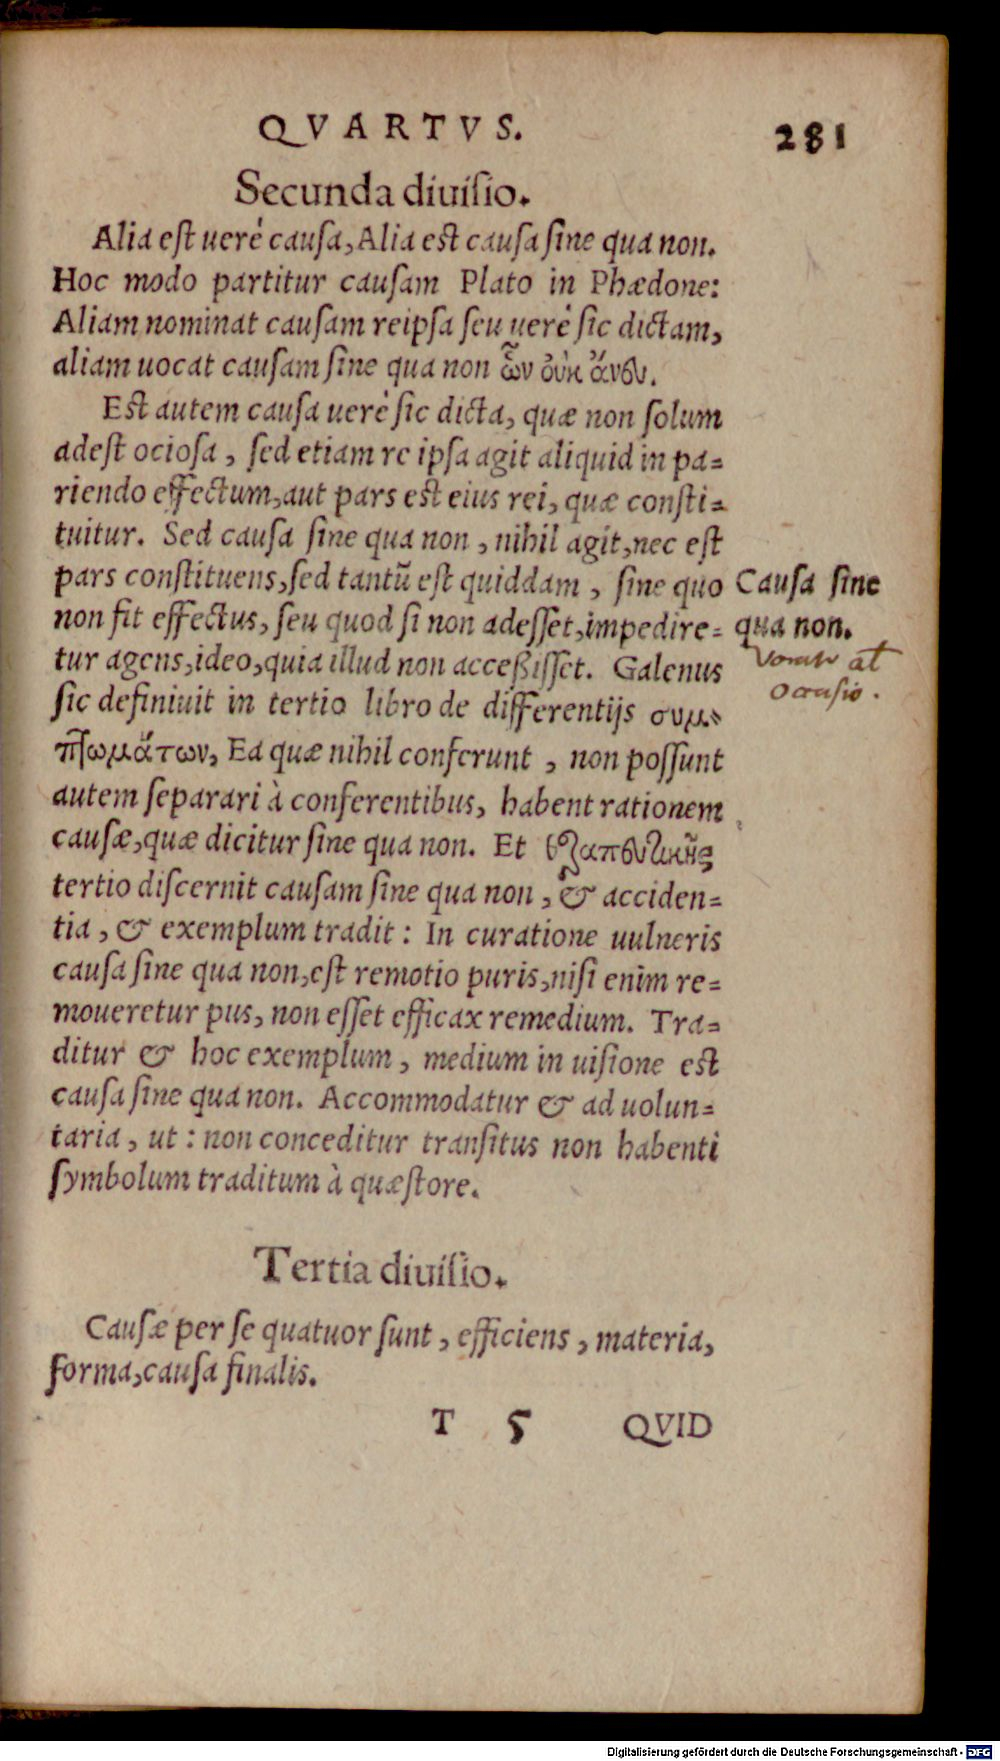 QVARTVS. 281
Secunda diuisio.
Alia est uerè causa, Alia est causa sine qua non.
Hoc modo partitur causam Plato in Phædone:
Aliam nominat causam reipsa seu uerè sic dictam,
aliam uocat causam sine qua non ὧν οὐκ ἄνευ.
Est autem causa uerè sic dicta, quæ non solum
adest ociosa, sed etiam re ipsa agit aliquid in pa=
riendo effectum, aut pars est eius rei, quæ consti=
tuitur. Sed causa sine qua non, nihil agit, nec est
pars constituens, sed tantũ est quiddam, sine quo
non fit effectus, seu quod si non adesset, impedire=
tur agens, ideo, quia illud non accessisset. Galenus
sic definiuit in tertio libro de differentijs συμ=
πτωμάτων, Ea quæ nihil conferunt, non possunt
autem separari à conferentibus, habent rationem
causæ, quæ dicitur sine qua non. Et θεραπευτικῆς
tertio discernit causam sine qua non, & acciden=
tia, & exemplum tradit: In curatione uulneris
causa sine qua non, est remotio puris, nisi enim re=
moueretur pus, non esset efficax remedium. Tra=
ditur & hoc exemplum, medium in uisione est
causa sine qua non. Accommodatur & ad uolun=
taria, ut: non conceditur transitus non habenti
symbolum traditum à quæstore.
Causa sine
qua non.
occasio.
Tertia diuisio.
Causæ per se quatuor sunt, efficiens, materia,
forma, causa finalis.
T 5 QVID
Digitalisierung gefördert durch die Deutsche Forschungsgemeinschaft - DFG